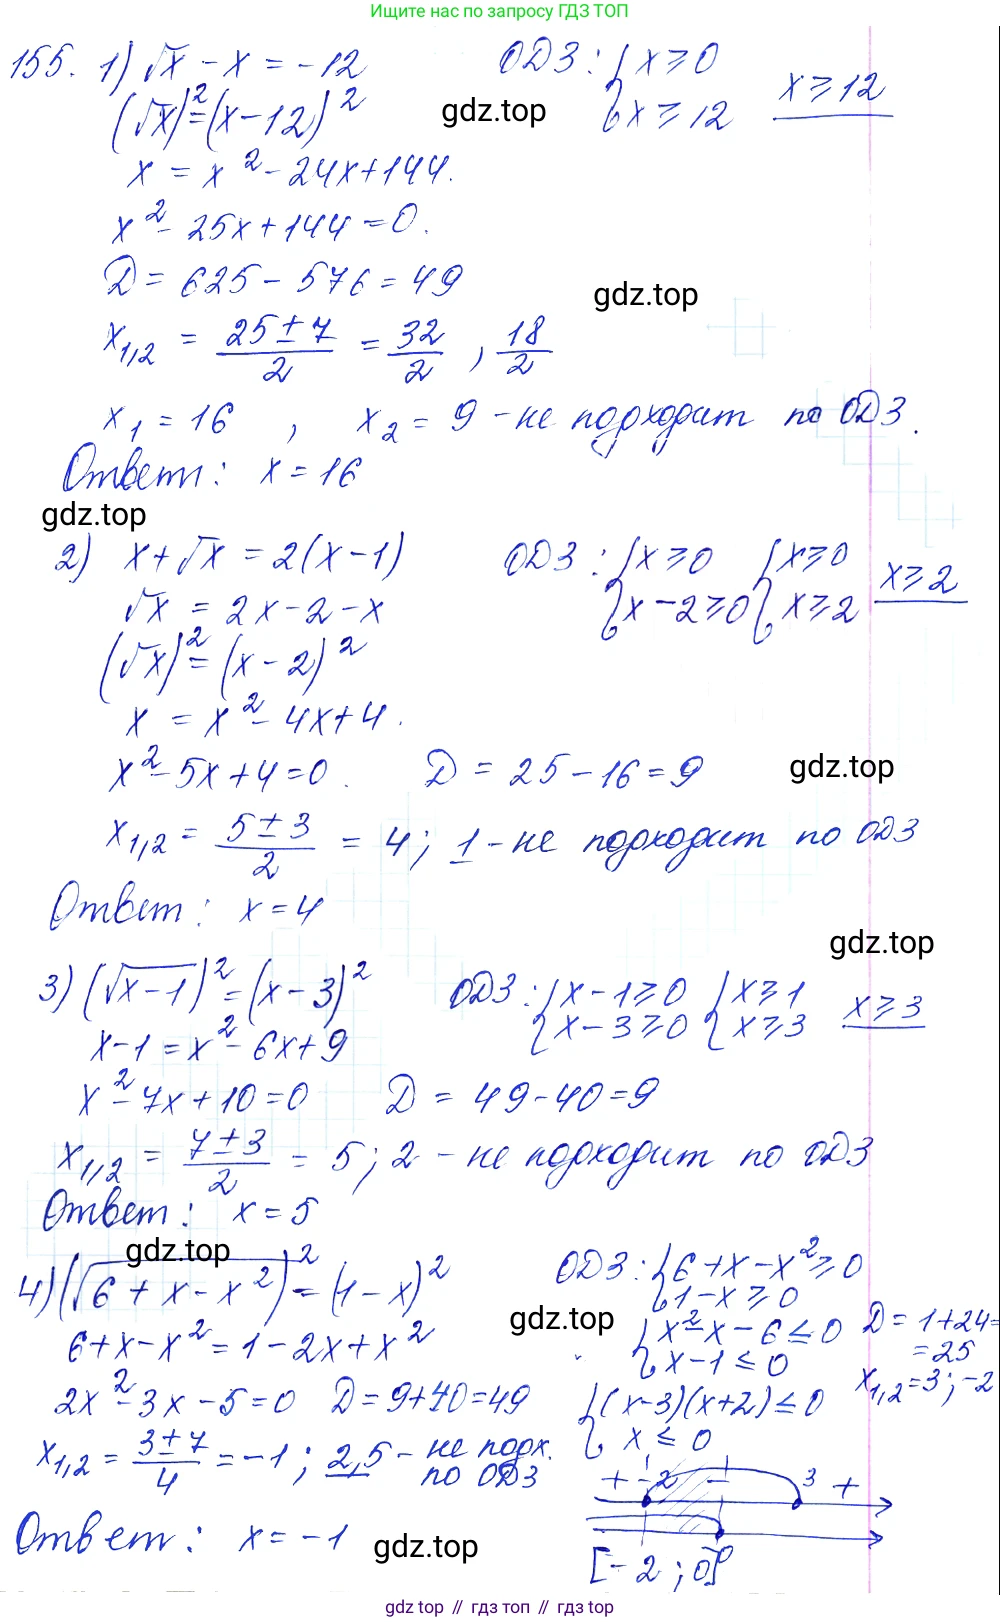 Ищите нас по запросу ГДЗ ТОП
155. 1) √x - x = -12 ОДЗ: { x ≥ 0
(√x)² = (x-12)² { x ≥ 12 x ≥ 12
gdz.top
x = x² - 24x + 144.
x² - 25x + 144 = 0.
Д = 625 - 576 = 49
gdz.top
x₁,₂ = (25 ± 7)/2 = 32/2 , 18/2
x₁ = 16 , x₂ = 9 - не подходит по ОДЗ.
Ответ: x = 16
gdz.top
2) x + √x = 2(x-1) ОДЗ: { x ≥ 0 { x ≥ 0 x ≥ 2
√x = 2x - 2 - x { x - 2 ≥ 0 { x ≥ 2
(√x)² = (x-2)²
x = x² - 4x + 4.
x² - 5x + 4 = 0. Д = 25 - 16 = 9
gdz.top
x₁,₂ = (5 ± 3)/2 = 4; 1 - не подходит по ОДЗ
Ответ: x = 4
gdz.top
3) (√(x-1))² = (x-3)² ОДЗ: { x - 1 ≥ 0 { x ≥ 1 x ≥ 3
x - 1 = x² - 6x + 9 { x - 3 ≥ 0 { x ≥ 3
x² - 7x + 10 = 0 Д = 49 - 40 = 9
x₁,₂ = (7 ± 3)/2 = 5; 2 - не подходит по ОДЗ
Ответ: x = 5
gdz.top
4) (√(6 + x - x²))² = (1 - x)² ОДЗ: { 6 + x - x² ≥ 0
{ 1 - x ≥ 0
gdz.top
6 + x - x² = 1 - 2x + x² { x² - x - 6 ≤ 0 Д = 1 + 24 =
{ x - 1 ≤ 0 = 25
x₁,₂ = 3; -2
2x² - 3x - 5 = 0 Д = 9 + 40 = 49 { (x-3)(x+2) ≤ 0
{ x ≤ 0
x₁,₂ = (3 ± 7)/4 = -1; 2,5 - не подх.
по ОДЗ
+ -2 - 3 +
Ответ: x = -1
gdz.top
[-2; 0]
gdz.top // gdz.top // gdz.top